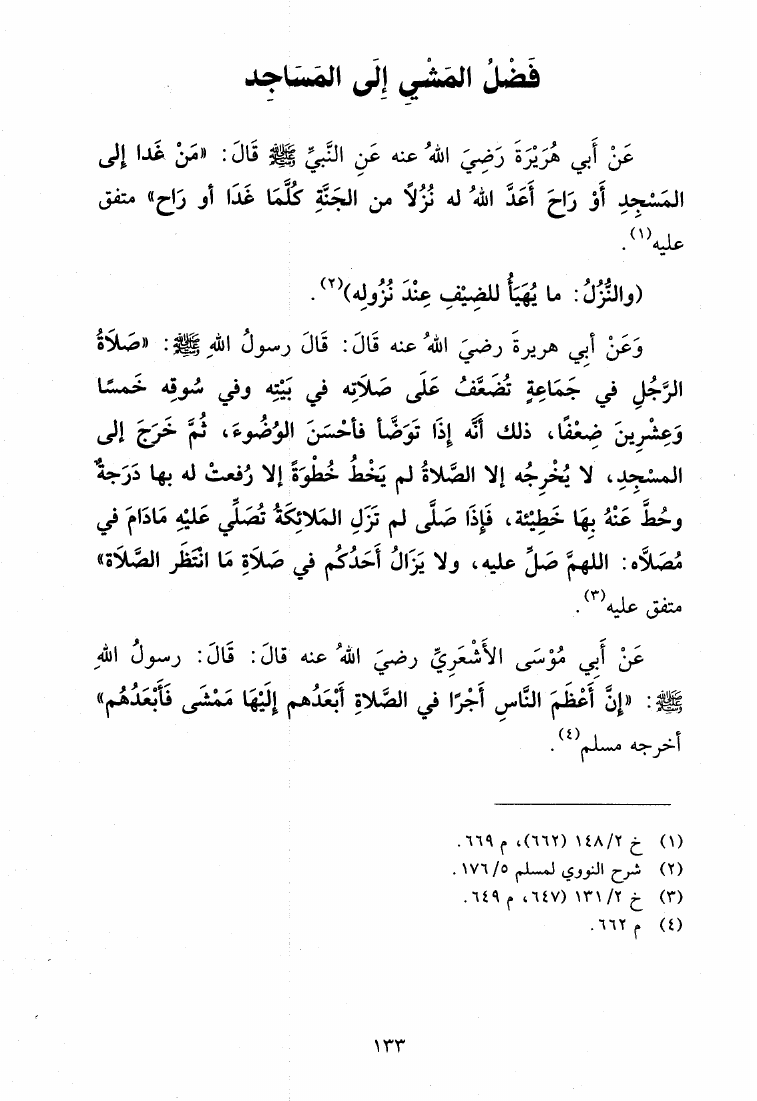 فَضْلُ المَشْيِ إِلَى المَسَاجِدِ
عَنْ أَبي هُرَيْرَةَ رَضِيَ اللهُ عنه عَنِ النَّبيِّ ﷺ قَالَ: «مَنْ غَدا إلى
المَسْجِدِ أَوْ رَاحَ أَعَدَّ اللهُ له نُزُلاً من الجَنَّةِ كُلَّمَا غَدَا أو رَاح» متفق
عليه(١).
(والنُّزُلُ: ما يُهَيَأُ للضِيْفِ عِنْدَ نُزُولِه)(٢).
وَعَنْ أبي هريرةَ رضيَ اللهُ عنه قَالَ: قَالَ رسولُ اللهِ ﷺ: «صَلاَةُ
الرَّجُلِ في جَمَاعةٍ تُضَعَّفُ عَلَى صَلاَتِه في بَيْتِه وفي سُوقِه خَمسًا
وَعِشْرِينَ ضِعْفًا، ذلك أنَّه إِذَا تَوَضَّأ فأحْسَنَ الوُضُوءَ، ثُمَّ خَرَجَ إلى
المسْجِدِ، لا يُخْرِجُه إلا الصَّلاةُ لم يَخْطُ خُطْوَةً إلا رُفعتْ له بها دَرَجةٌ
وحُطَّ عَنْهُ بِهَا خَطِيْئة، فَإِذَا صَلَّى لم تَزَلِ المَلائِكَةُ تُصَلِّي عَلَيْهِ مَادَامَ في
مُصَلاَّه: اللهمَّ صَلِّ عليه، ولا يَزَالُ أَحَدُكُم في صَلاَةٍ مَا انْتَظَر الصَّلاَة»
متفق عليه(٣).
عَنْ أَبي مُوْسَى الأَشْعَرِيِّ رضيَ اللهُ عنه قالَ: قَالَ: رسولُ اللهِ
ﷺ: «إِنَّ أَعْظَمَ النَّاسِ أَجْرًا في الصَّلاةِ أَبْعَدُهم إِلَيْهَا مَمْشَى فَأَبْعَدُهُم»
أخرجه مسلم(٤).
(١) خ ١٤٨/٢ (٦٦٢)، م ٦٦٩.
(٢) شرح النووي لمسلم ١٧٦/٥.
(٣) خ ١٣١/٢ (٦٤٧، م ٦٤٩.
(٤) م ٦٦٢.
١٣٣